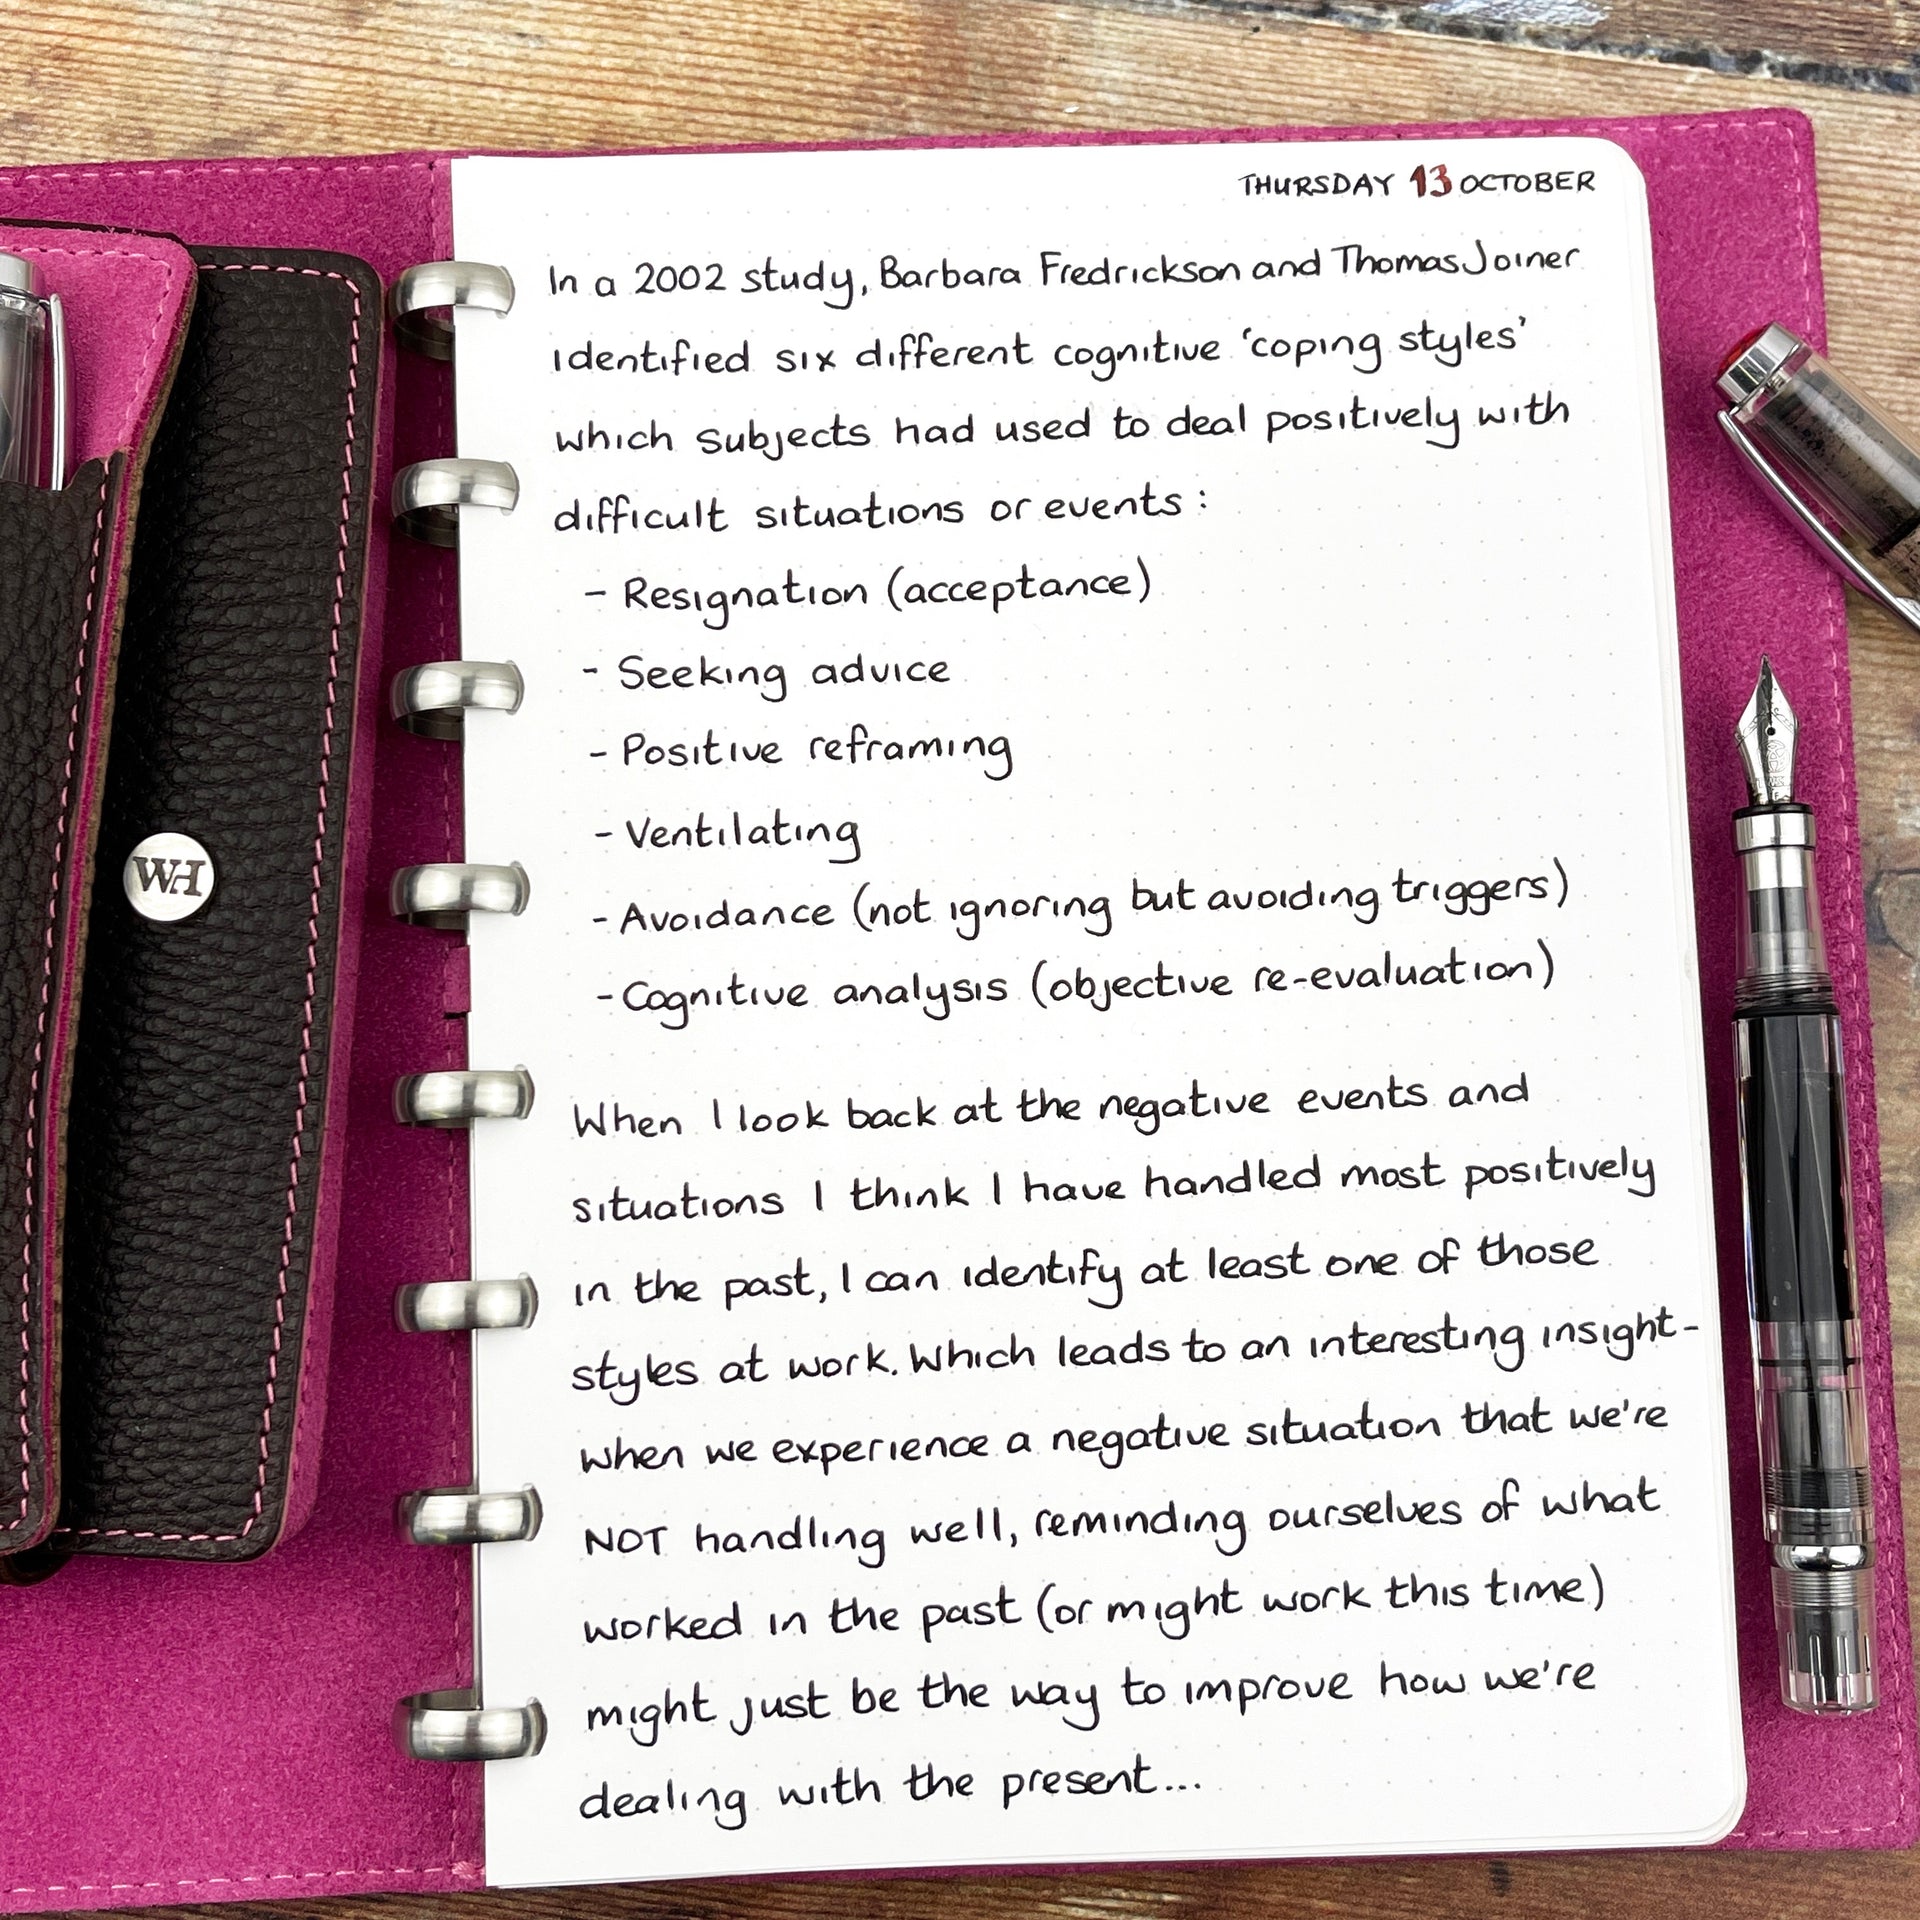 THURSDAY 13 OCTOBER
In a 2002 study, Barbara Fredrickson and Thomas Joiner
identified six different cognitive ‘coping styles’
which subjects had used to deal positively with
difficult situations or events:
- Resignation (acceptance)
- Seeking advice
- Positive reframing
- Ventilating
- Avoidance (not ignoring but avoiding triggers)
- Cognitive analysis (objective re-evaluation)
When I look back at the negative events and
situations I think I have handled most positively
in the past, I can identify at least one of those
styles at work. Which leads to an interesting insight-
when we experience a negative situation that we're
NOT handling well, reminding ourselves of what
worked in the past (or might work this time)
might just be the way to improve how we're
dealing with the present...
WH